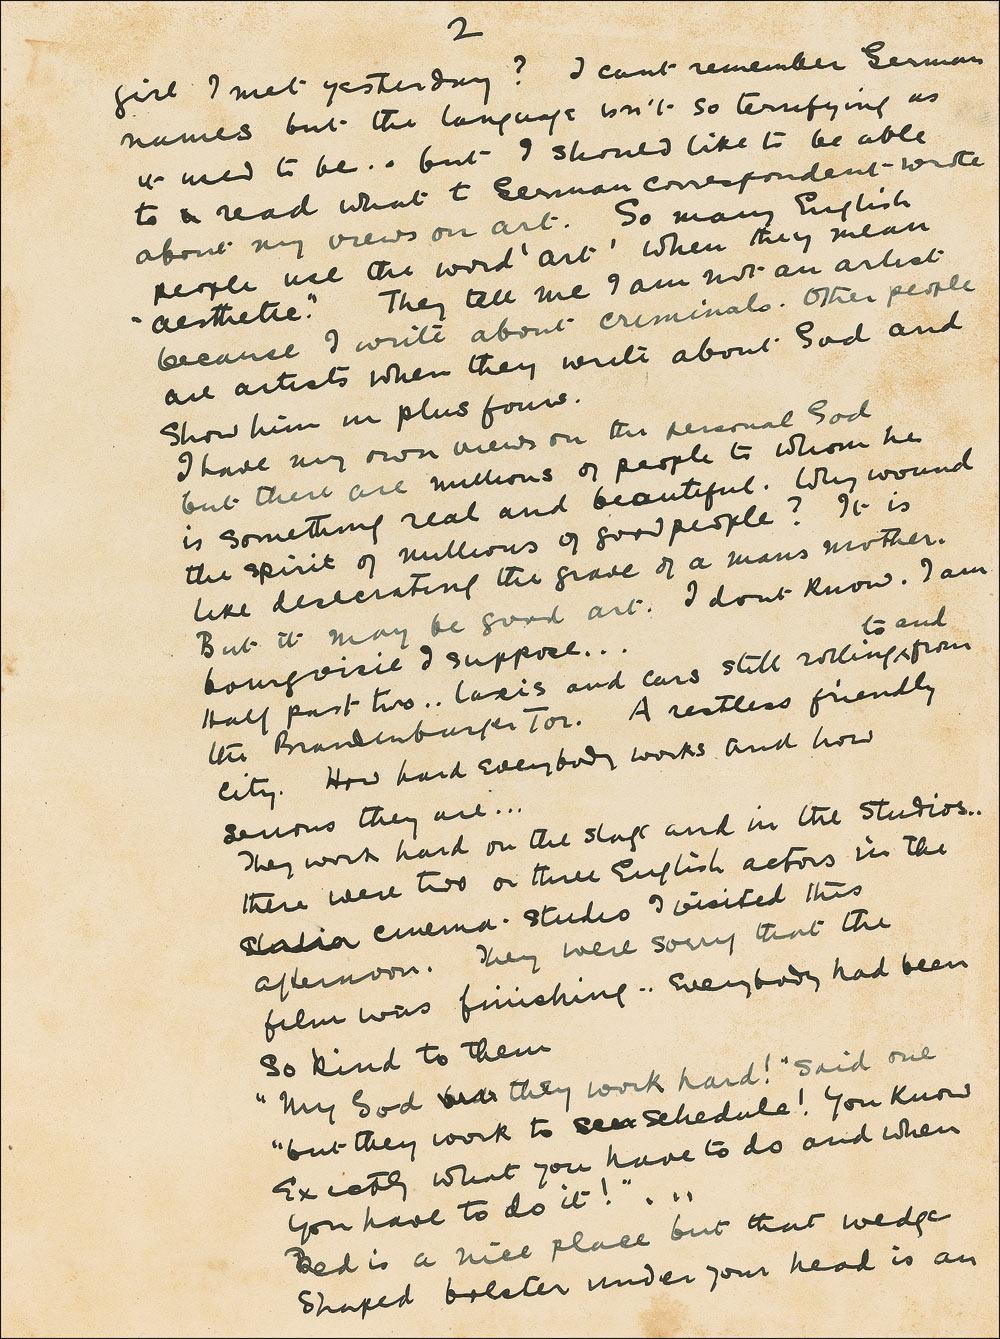 2
girl I met yesterday? I cant remember German
names but the language isn't so terrifying as
it used to be.. but I should like to be able
to read what t German correspondent wrote
about my views on art. So many English
people use the word 'art' when they mean
"aesthetic." They tell me I am not an artist
because I write about criminals. Other people
are artists when they write about God and
show him in plus fours.
I have my own views on the personal God
but there are millions of people to whom he
is something real and beautiful. Why wound
the spirit of millions of good people? It is
like desecrating the grave of a mans mother.
But it may be good art. I dont know. I am
bourgoisie I suppose...
Half past two.. taxis and cars still rolling to and from
the Brandenburger Tor. A restless friendly
city. How hard everybody works and how
serious they are...
They work hard on the stage and in the studios..
there were two or three English actors in the
cinema. studio I visited this
afternoon. They were sorry that the
film was finishing.. Everybody had been
so kind to them
"My God they work hard!" said one
"but they work to schedule! You know
Exactly what you have to do and when
you have to do it!" . ..
Bed is a nice place but that wedge
shaped bolster under your head is an